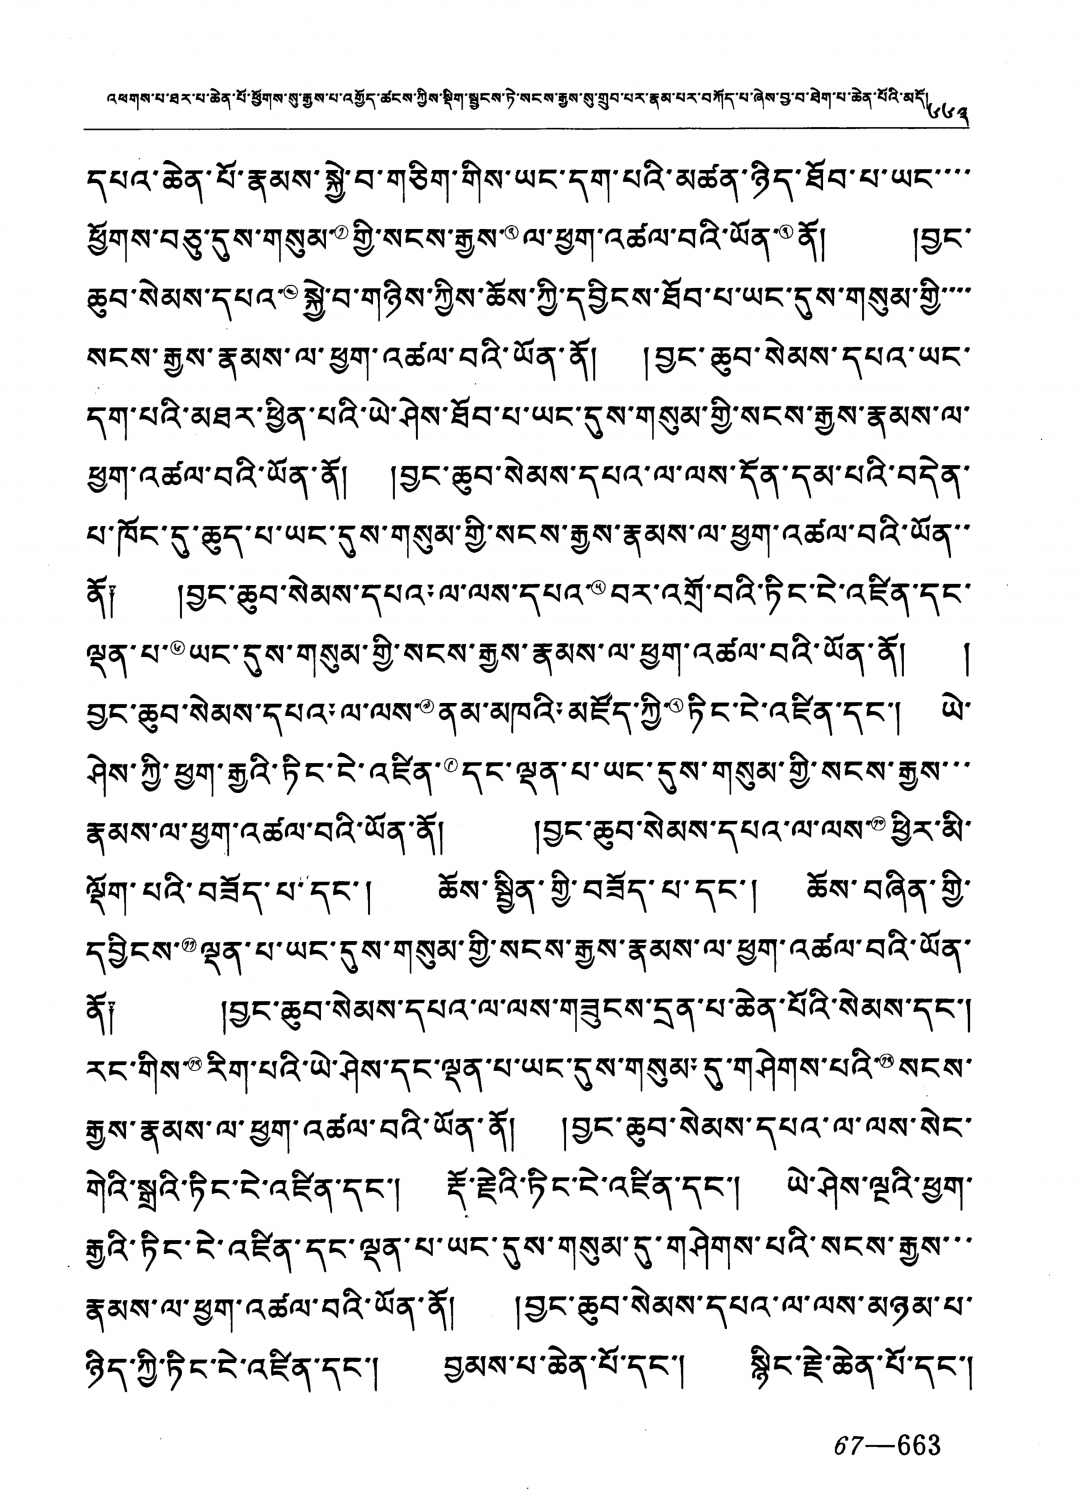 འཕགས་པ་ཐར་པ་ཆེན་པོ་ཕྱོགས་སུ་རྒྱས་པ་འགྱོད་ཚངས་ཀྱིས་སྡིག་སྦྱངས་ཏེ་སངས་རྒྱས་སུ་གྲུབ་པར་རྣམ་པར་བཀོད་པ་ཞེས་བྱ་བ་ཐེག་པ་ཆེན་པོའི་མདོ། ༦༦༣
དཔའ་ཆེན་པོ་རྣམས་སྐྱེ་བ་གཅིག་གིས་ཡང་དག་པའི་མཚན་ཉིད་ཐོབ་པ་ཡང་····
ཕྱོགས་བཅུ་དུས་གསུམ་①གྱི་སངས་རྒྱས་②ལ་ཕྱག་འཚལ་བའི་ཡོན་③ནོ། །བྱང་
ཆུབ་སེམས་དཔའ་④སྐྱེ་བ་གཉིས་ཀྱིས་ཆོས་ཀྱི་དབྱིངས་ཐོབ་པ་ཡང་དུས་གསུམ་གྱི····
སངས་རྒྱས་རྣམས་ལ་ཕྱག་འཚལ་བའི་ཡོན་ནོ། །བྱང་ཆུབ་སེམས་དཔའ་ཡང་
དག་པའི་མཐར་ཕྱིན་པའི་ཡེ་ཤེས་ཐོབ་པ་ཡང་དུས་གསུམ་གྱི་སངས་རྒྱས་རྣམས་ལ་
ཕྱག་འཚལ་བའི་ཡོན་ནོ། །བྱང་ཆུབ་སེམས་དཔའ་ལ་ལས་དོན་དམ་པའི་བདེན་
པ་ཁོང་དུ་ཆུད་པ་ཡང་དུས་གསུམ་གྱི་སངས་རྒྱས་རྣམས་ལ་ཕྱག་འཚལ་བའི་ཡོན་··
ནོ༑ །བྱང་ཆུབ་སེམས་དཔའ་ལ་ལས་དཔའ་⑤བར་འགྲོ་བའི་ཏིང་ངེ་འཛིན་དང་
ལྡན་པ་⑥ཡང་དུས་གསུམ་གྱི་སངས་རྒྱས་རྣམས་ལ་ཕྱག་འཚལ་བའི་ཡོན་ནོ། །
བྱང་ཆུབ་སེམས་དཔའ་ལ་ལས་⑦ནམ་མཁའི་མཛོད་ཀྱི་⑧ཏིང་ངེ་འཛིན་དང་། ཡེ་
ཤེས་ཀྱི་ཕྱག་རྒྱའི་ཏིང་ངེ་འཛིན་⑨དང་ལྡན་པ་ཡང་དུས་གསུམ་གྱི་སངས་རྒྱས་···
རྣམས་ལ་ཕྱག་འཚལ་བའི་ཡོན་ནོ། །བྱང་ཆུབ་སེམས་དཔའ་ལ་ལས་⑩ཕྱིར་མི་
ལྡོག་པའི་བཟོད་པ་དང་། ཆོས་སྦྱིན་གྱི་བཟོད་པ་དང་། ཆོས་བཞིན་གྱི་
དབྱིངས་⑪ལྡན་པ་ཡང་དུས་གསུམ་གྱི་སངས་རྒྱས་རྣམས་ལ་ཕྱག་འཚལ་བའི་ཡོན་
ནོ༑ །བྱང་ཆུབ་སེམས་དཔའ་ལ་ལས་གཟུངས་དྲན་པ་ཆེན་པོའི་སེམས་དང་།
རང་གིས་⑫རིག་པའི་ཡེ་ཤེས་དང་ལྡན་པ་ཡང་དུས་གསུམ་དུ་གཤེགས་པའི་⑬སངས་
རྒྱས་རྣམས་ལ་ཕྱག་འཚལ་བའི་ཡོན་ནོ། །བྱང་ཆུབ་སེམས་དཔའ་ལ་ལས་སེང་
གེའི་སྒྲའི་ཏིང་ངེ་འཛིན་དང་། རྡོ་རྗེའི་ཏིང་ངེ་འཛིན་དང་། ཡེ་ཤེས་ལྔའི་ཕྱག་
རྒྱའི་ཏིང་ངེ་འཛིན་དང་ལྡན་པ་ཡང་དུས་གསུམ་དུ་གཤེགས་པའི་སངས་རྒྱས་···
རྣམས་ལ་ཕྱག་འཚལ་བའི་ཡོན་ནོ། །བྱང་ཆུབ་སེམས་དཔའ་ལ་ལས་མཉམ་པ་
ཉིད་ཀྱི་ཏིང་ངེ་འཛིན་དང་། བྱམས་པ་ཆེན་པོ་དང་། སྙིང་རྗེ་ཆེན་པོ་དང་།
67—663